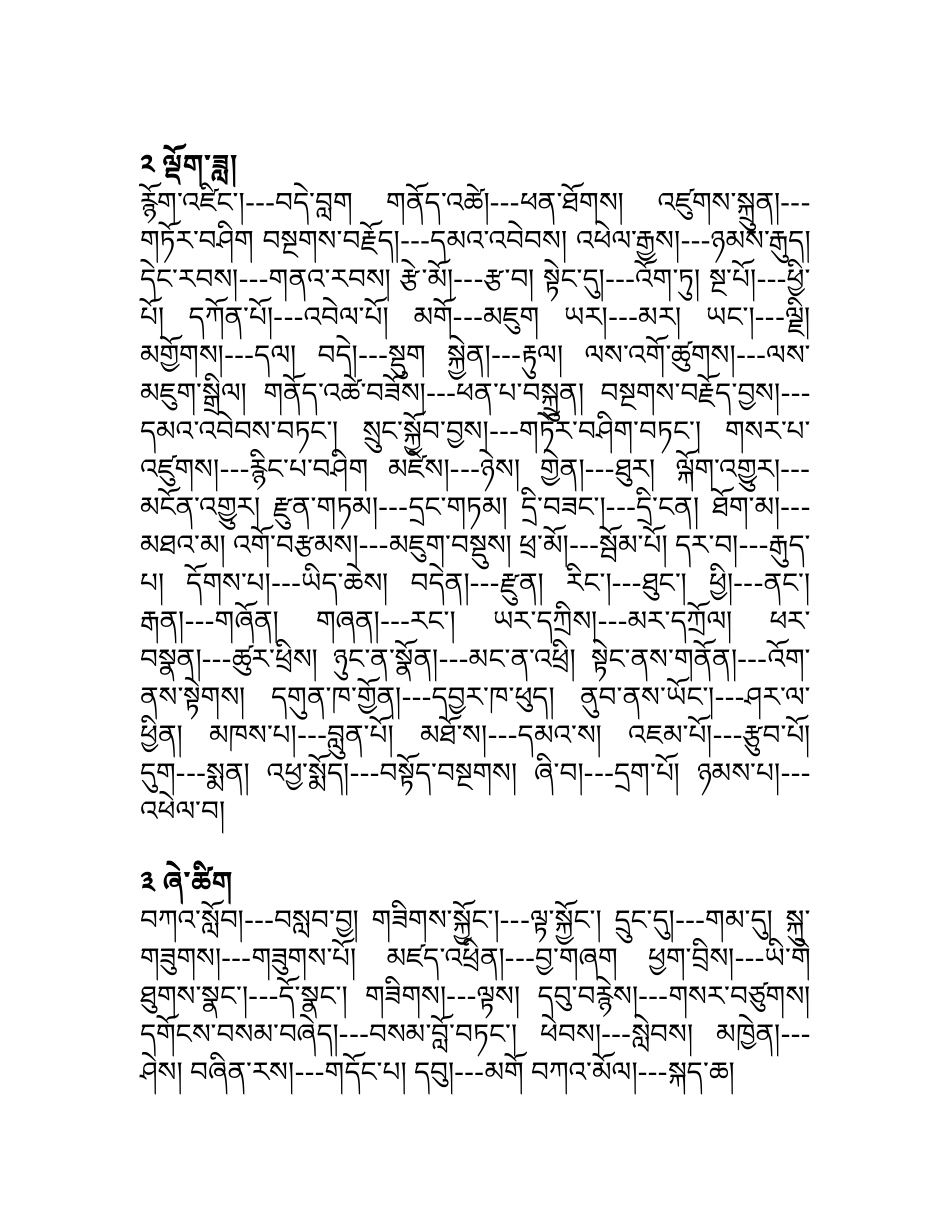 ༢ ལྡོག་ཟླ།
རྙོག་འཛིང་།---བདེ་བླག གནོད་འཚེ།---ཕན་ཐོགས། འཛུགས་སྐྲུན།---
གཏོར་བཤིག བསྔགས་བརྗོད།---དམའ་འབེབས། འཕེལ་རྒྱས།---ཉམས་རྒུད།
དེང་རབས།---གནའ་རབས། རྩེ་མོ།---རྩ་བ། སྟེང་དུ།---འོག་ཏུ། སྔ་པོ།---ཕྱི་
པོ། དཀོན་པོ།---འབེལ་པོ། མགོ---མཇུག ཡར།---མར། ཡང་།---ལྗི།
མགྱོགས།---དལ། བདེ།---སྡུག སྐྱེན།---རྟུལ། ལས་འགོ་ཚུགས།---ལས་
མཇུག་སྒྲིལ། གནོད་འཚེ་བཟོས།---ཕན་པ་བསྐྲུན། བསྔགས་བརྗོད་བྱས།---
དམའ་འབེབས་བཏང་། སྲུང་སྐྱོབ་བྱས།---གཏོར་བཤིག་བཏང་། གསར་པ་
འཛུགས།---རྙིང་པ་བཤིག མཛེས།---ཉེས། གྱེན།---ཐུར། ལྐོག་འགྱུར།---
མངོན་འགྱུར། རྫུན་གཏམ།---དྲང་གཏམ། དྲི་བཟང་།---དྲི་ངན། ཐོག་མ།---
མཐའ་མ། འགོ་བརྩམས།---མཇུག་བསྡུས། ཕྲ་མོ།---སྦོམ་པོ། དར་བ།---རྒུད་
པ། དོགས་པ།---ཡིད་ཆེས། བདེན།---རྫུན། རིང་།---ཐུང་། ཕྱི།---ནང་།
རྒན།---གཞོན། གཞན།---རང་། ཡར་དཀྲིས།---མར་དཀྲོལ། ཕར་
བསྣན།---ཚུར་ཕྲིས། ཉུང་ན་སྣོན།---མང་ན་འཕྲི། སྟེང་ནས་གནོན།---འོག་
ནས་སྟེགས། དགུན་ཁ་གྱོན།---དབྱར་ཁ་ཕུད། ནུབ་ནས་ཡོང་།---ཤར་ལ་
ཕྱིན། མཁས་པ།---བླུན་པོ། མཐོ་ས།---དམའ་ས། འཇམ་པོ།---རྩུབ་པོ།
དུག---སྨན། འཕྱ་སྨོད།---བསྟོད་བསྔགས། ཞི་བ།---དྲག་པོ། ཉམས་པ།---
འཕེལ་བ།
༣ ཞེ་ཚིག
བཀའ་སློབ།---བསླབ་བྱ། གཟིགས་སྐྱོང་།---ལྟ་སྐྱོང་། དྲུང་དུ།---གམ་དུ། སྐུ་
གཟུགས།---གཟུགས་པོ། མཛད་འཕྲིན།---བྱ་གཞག ཕྱག་བྲིས།---ཡི་གེ
ཐུགས་སྣང་།---དོ་སྣང་། གཟིགས།---ལྟས། དབུ་བརྙེས།---གསར་བཙུགས།
དགོངས་བསམ་བཞེད།---བསམ་བློ་བཏང་། ཕེབས།---སླེབས། མཁྱེན།---
ཤེས། བཞིན་རས།---གདོང་པ། དབུ།---མགོ བཀའ་མོལ།---སྐད་ཆ།